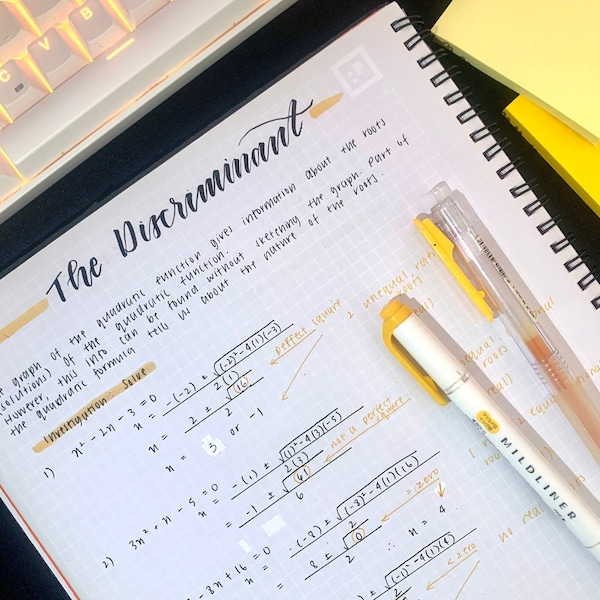 C V B
The Discriminant
graph of the quadratic function gives information about the roots
(solutions) of the quadratic function.
However, this info can be found without sketching the graph. Part of
the quadratic formula tell us about the nature of the roots.
Investigation: Solve
1) x² - 2x - 3 = 0
x = -(-2) ± √(-2)² - 4(1)(-3) / 2(1)
perfect square
2 unequal
roots
x = 2 ± √16 / 2
x = 3 or -1
2) 3x² + x - 5 = 0
x = -(1) ± √(1)² - 4(3)(-5) / 2(3)
not a perfect
square
= -1 ± √61 / 6
- 8x + 16 = 0
x = -(-8) ± √(-8)² - 4(1)(16) / 2
= zero
= 8 ± √0 / 2 ∴ x = 4
√(-1)² - 4(1)(4)
< zero
no real
MILDLINER